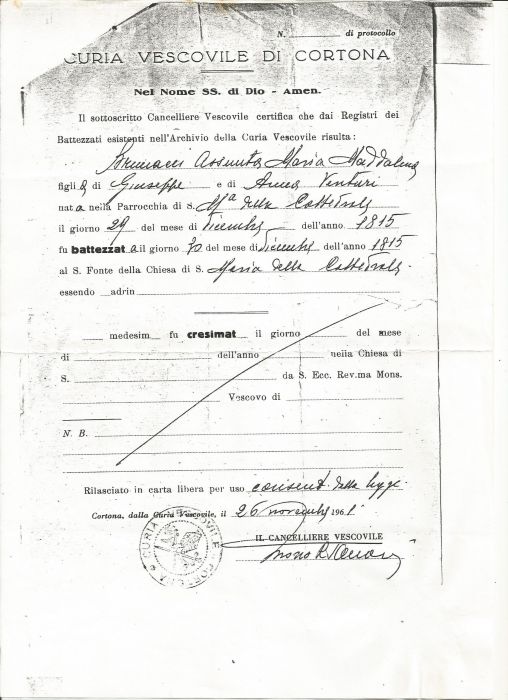 N. ________ di protocollo
CURIA VESCOVILE DI CORTONA
Nel Nome SS. di Dio - Amen.
Il sottoscritto Cancelliere Vescovile certifica che dai Registri dei
Battezzati esistenti nell'Archivio della Curia Vescovile risulta:
Brunacci Assunta Maria Maddalena
figlia di Giuseppe e di Anna Venturi
nata nella Parrocchia di S. Ma della Cattedrale
il giorno 29 del mese di Dicembre dell'anno 1815
fu battezzata il giorno 30 del mese di Dicembre dell'anno 1815
al S. Fonte della Chiesa di S. Maria della Cattedrale
essendo __adrin
____ medesim__ fu cresimat__ il giorno ________ del mese
di ________ dell'anno ________ nella Chiesa di
S. ________ da S. Ecc. Rev.ma Mons.
Vescovo di
N. B.
Rilasciato in carta libera per uso consent. dalla legge
Cortona, dalla Curia Vescovile, il 26 novembre 1961
CURIA VESCOVILE
IL CANCELLIERE VESCOVILE